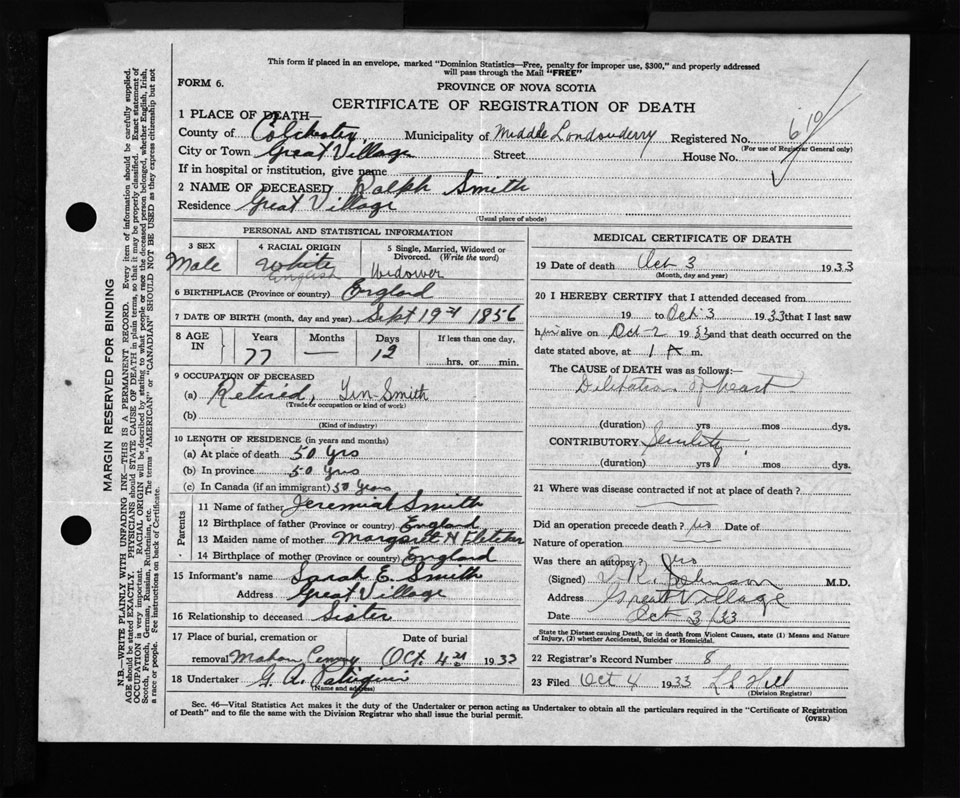 This form if placed in an envelope, marked "Dominion Statistics—Free, penalty for improper use, $300," and properly addressed
will pass through the Mail "FREE"
FORM 6.
PROVINCE OF NOVA SCOTIA
CERTIFICATE OF REGISTRATION OF DEATH
1 PLACE OF DEATH—
County of Colchester Municipality of Middle Londonderry Registered No. 610
(For use of Registrar General only)
City or Town Great Village Street House No.
If in hospital or institution, give name
2 NAME OF DECEASED Ralph Smith
Residence Great Village
(Usual place of abode)
PERSONAL AND STATISTICAL INFORMATION
3 SEX
Male
4 RACIAL ORIGIN
White
English
5 Single, Married, Widowed or
Divorced. (Write the word)
Widower
6 BIRTHPLACE (Province or country) England
7 DATE OF BIRTH (month, day and year) Sept 19th 1856
8 AGE
IN
Years
77
Months
—
Days
12
If less than one day,
hrs. or min.
9 OCCUPATION OF DECEASED
(a) Retired, Tin-Smith
(Trade occupation or kind of work)
(b)
(Kind of industry)
10 LENGTH OF RESIDENCE (in years and months)
(a) At place of death 50 yrs
(b) In province 50 yrs
(c) In Canada (if an immigrant) 50 years
Parents
11 Name of father Jeremiah Smith
12 Birthplace of father (Province or country) England
13 Maiden name of mother Margaret N Fletcher
14 Birthplace of mother (Province or country) England
15 Informant's name Sarah E. Smith
Address Great Village
16 Relationship to deceased Sister
17 Place of burial, cremation or
removal Mahon
Date of burial
Oct. 4th 1933
18 Undertaker G. R.
(Name and address)
MEDICAL CERTIFICATE OF DEATH
19 Date of death Oct 3 1933
(Month, day and year)
20 I HEREBY CERTIFY that I attended deceased from
19 to Oct 3 1933 that I last saw
him alive on Oct 2 1933 and that death occurred on the
date stated above, at 1 A m.
The CAUSE of DEATH was as follows:—
Dilitation of heart
(duration) yrs mos dys.
CONTRIBUTORY Senility
(duration) yrs mos dys.
21 Where was disease contracted if not at place of death?
Did an operation precede death? no Date of
Nature of operation
Was there an autopsy? no
(Signed) Johnson M.D.
Address Great Village
Date Oct 3/33
State the Disease causing Death, or in death from Violent Causes, state (1) Means and Nature
of Injury, (2) whether Accidental, Suicidal or Homicidal.
22 Registrar's Record Number 8
23 Filed Oct 4 1933 L S Hill
(Division Registrar)
Sec. 46—Vital Statistics Act makes it the duty of the Undertaker or person acting as Undertaker to obtain all the particulars required in the "Certificate of Registration
of Death" and to file the same with the Division Registrar who shall issue the burial permit.
(OVER)
MARGIN RESERVED FOR BINDING
N.B.—WRITE PLAINLY WITH UNFADING INK—THIS IS A PERMANENT RECORD. Every item of information should be carefully supplied.
AGE should be stated EXACTLY. PHYSICIANS should STATE CAUSE OF DEATH in plain terms, so that it may be properly classified. Exact statement of
OCCUPATION is very important. RACIAL ORIGIN will be described by stating to what people or race the deceased person belonged, whether English, Irish,
Scotch, French, German, Russian, Ruthenian, etc. The terms "AMERICAN" or "CANADIAN" SHOULD NOT BE USED as they express citizenship but not
a race or people. See instructions on back of Certificate.